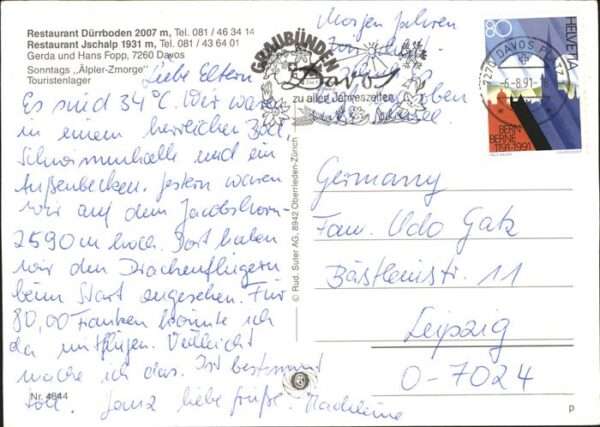 Restaurant Dürrboden 2007 m, Tel. 081 / 46 34 14
Restaurant Jschalp 1931 m, Tel. 081 / 43 64 01
Gerda und Hans Fopp, 7260 Davos
Sonntags „Älpler-Zmorge“
Touristenlager
Liebe Eltern
Es sind 34°C. Wir waren
in einem herrlichen Bad
Schwimmhalle und ein
Außenbecken. Gestern waren
wir auf dem Jacobshorn-
2590m hoch. Dort haben
wir den Drachenfliegern
beim Start angesehen. Für
80,00 Franken könnte ich
da mitfliegen. Vielleicht
mache ich das. Ist bestimmt
toll. Ganz liebe Grüße - Madeleine
Nr. 4844
Morgen fahren
wir
oben
GRAUBÜNDEN
Davos
zu allen Jahreszeiten
80
HELVETIA
7270 DAVOS PLATZ
-6.-8.91-
BERN
BERNE
1191-1991
© Rud. Suter AG, 8942 Oberrieden-Zürich
Germany
Fam. Udo Gatz
Bästleinstr. 11
Leipzig
O-7024
p